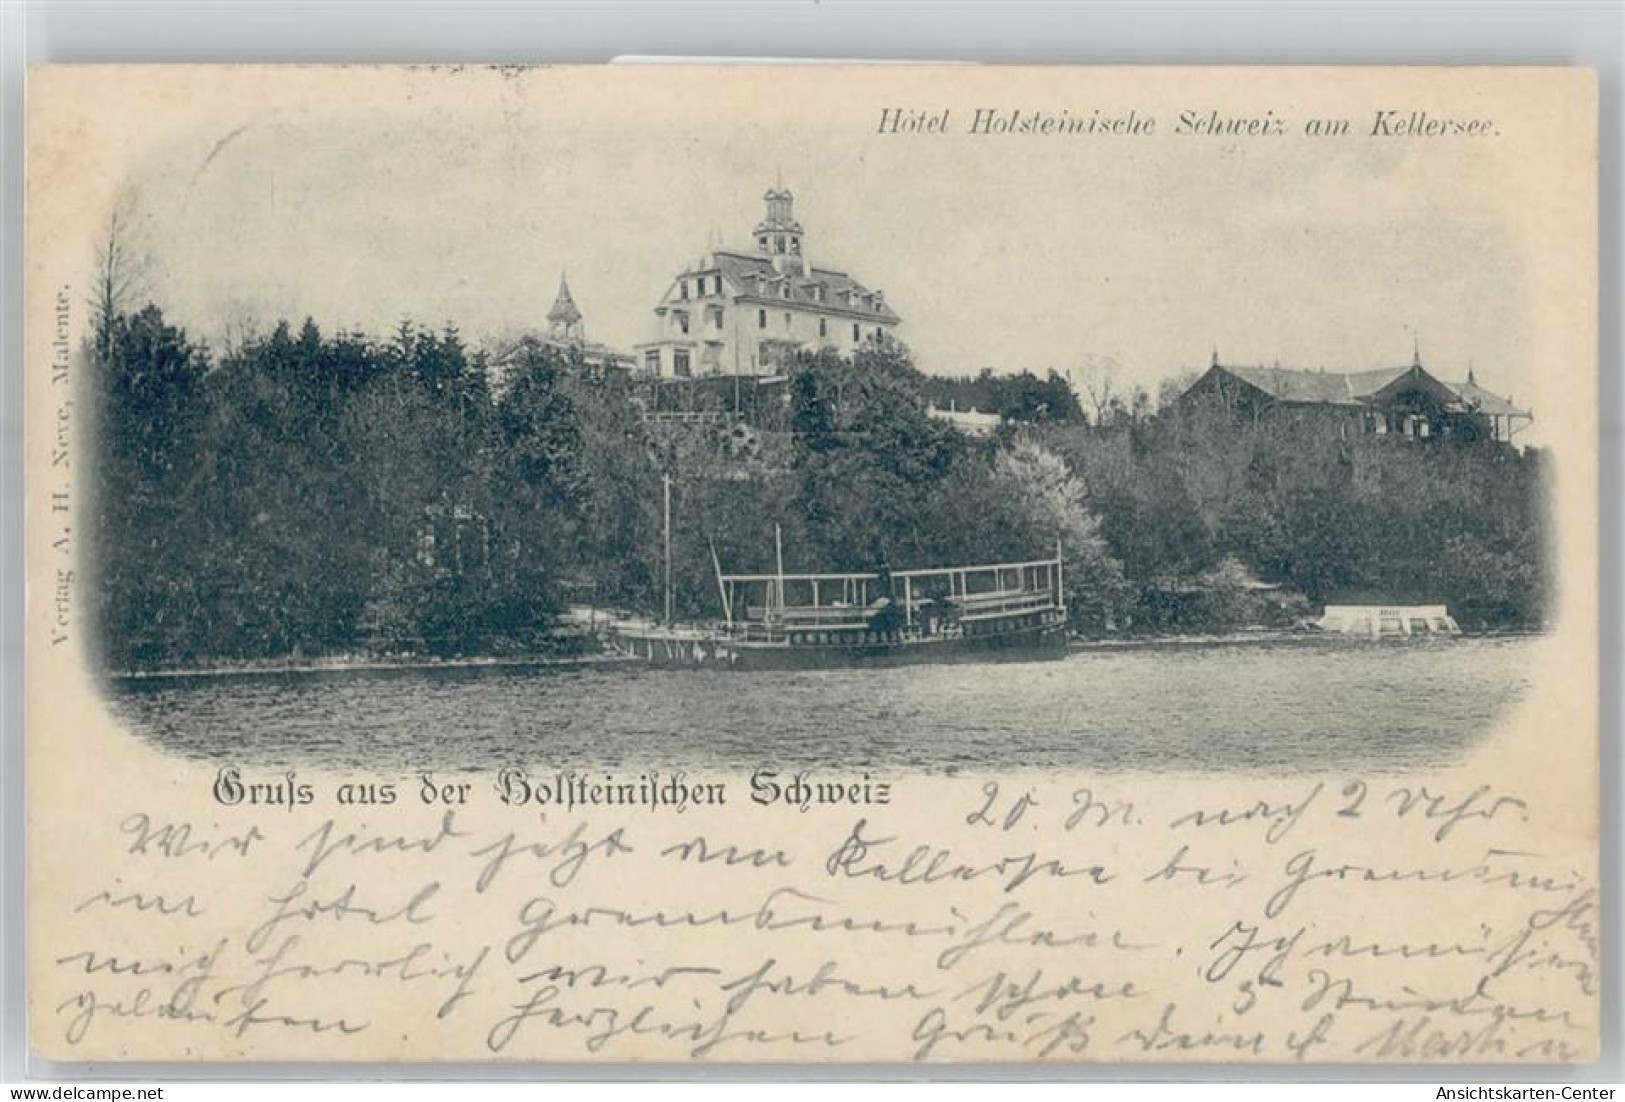 Hôtel Holsteinische Schweiz am Kellersee.
Verlag A. H. Neve, Malente.
Gruſs aus der Holſteiniſchen Schweiz
20. M. nach 2 Uhr.
Wir sind jetzt am Kellersee bei Gremsmühlen
im Hotel Gremsmühlen. Ich amüsiere
mich herrlich wir haben schon 3 Stunden
gelaufen. Herzlichen Gruß Dein Martin
delcampe.net
Ansichtskarten-Center